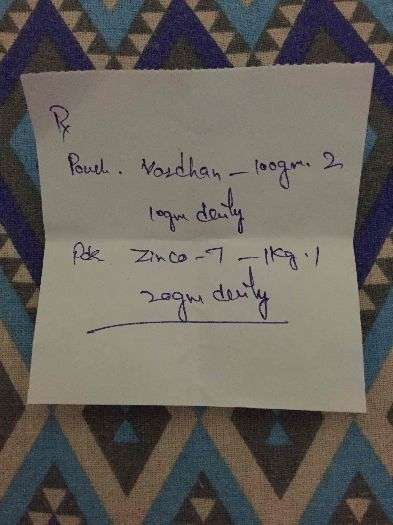 Rx
Pouch. Vardhan - 100gm. 2
10gm daily
Pck Zinco-7 - 1Kg. 1
20gm daily